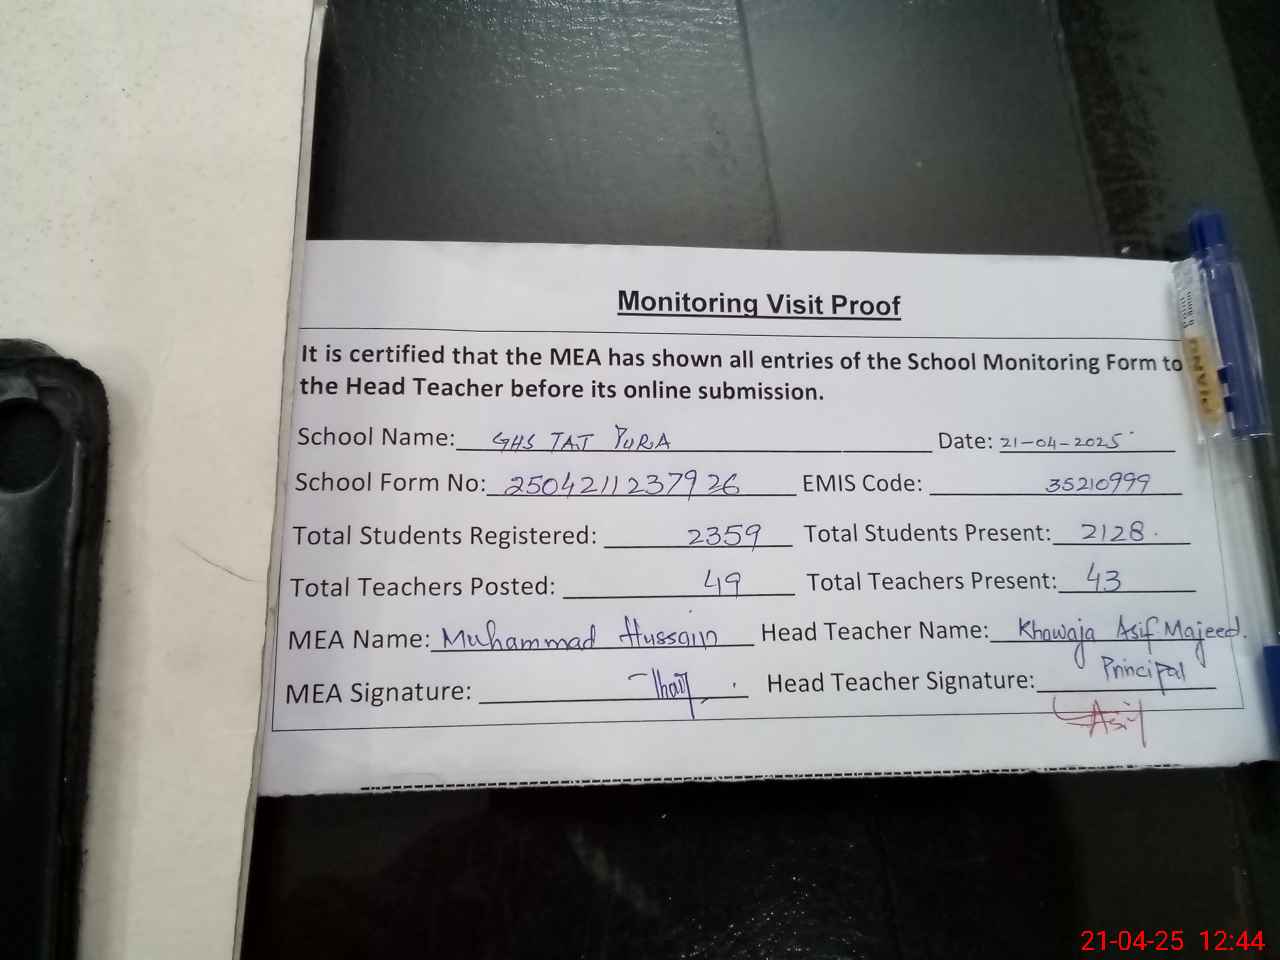 Monitoring Visit Proof
It is certified that the MEA has shown all entries of the School Monitoring Form to
the Head Teacher before its online submission.
School Name: GHS TAT PURA Date: 21-04-2025
School Form No: 25042111237926 EMIS Code: 35210999
Total Students Registered: 2359 Total Students Present: 2128
Total Teachers Posted: 49 Total Teachers Present: 43
MEA Name: Muhammad Hussain Head Teacher Name: Khawaja Asif Majeed.
Principal
MEA Signature: Head Teacher Signature:
Asif
21-04-25 12:44